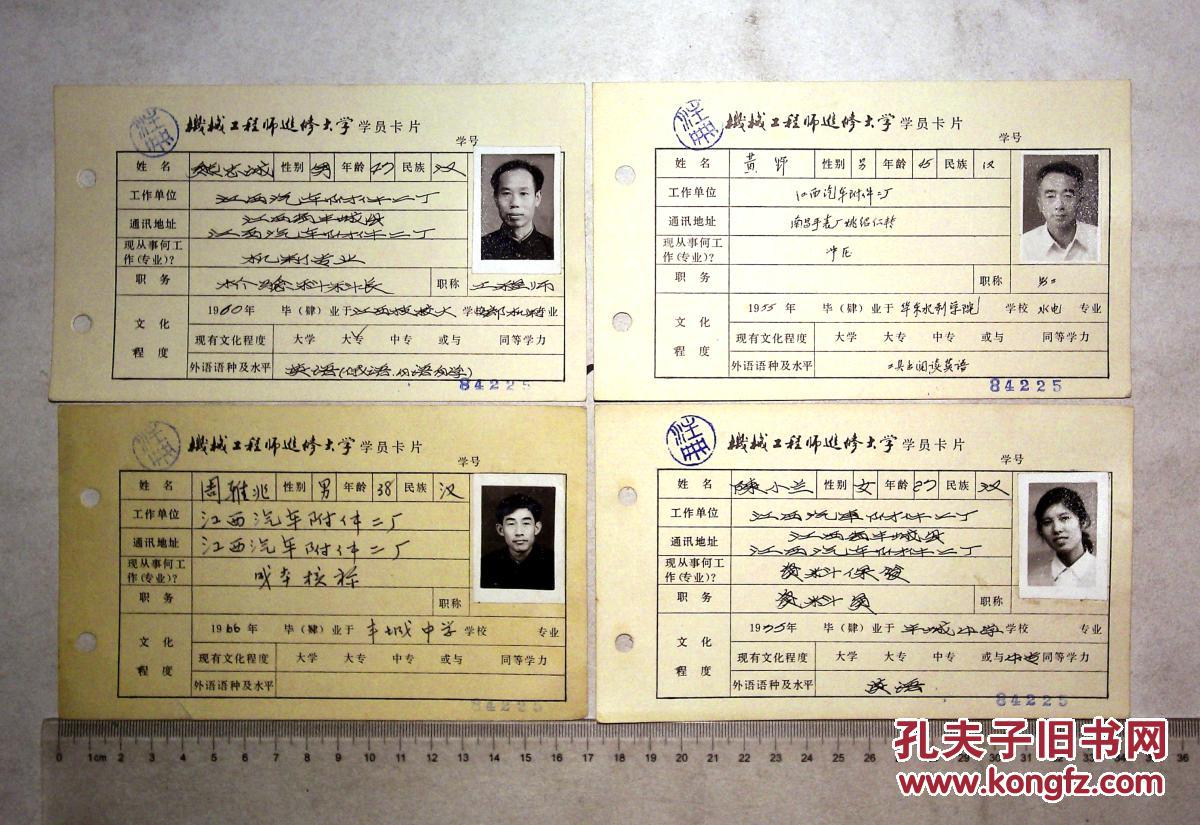 機械工程师進修大学 学员卡片
学号
姓名 性别 男 年龄 47 民族 汉
工作单位 江西汽车附件二厂
通讯地址 江西 丰城
江西汽车附件二厂
现从事何工作(专业)? 机 专业
职务 科科长 职称 工程师
文化程度
1960年 毕(肄)业于 江西 大 学校 专业
现有文化程度 大学 大专 中专 或与 同等学力
外语语种及水平 英语(俄语
84225
機械工程师進修大学 学员卡片
学号
姓名 黄 性别 男 年龄 45 民族 汉
工作单位 江西汽车附件二厂
通讯地址 南昌手表厂姚绍仁转
现从事何工作(专业)? 冲压
职务 职称
文化程度
1955年 毕(肄)业于 华东水利学院 学校 水电 专业
现有文化程度 大学 大专 中专 或与 同等学力
外语语种及水平 阅读英语
84225
機械工程师進修大学 学员卡片
学号
姓名 周雅兆 性别 男 年龄 38 民族 汉
工作单位 江西汽车附件二厂
通讯地址 江西汽车附件二厂
现从事何工作(专业)? 成本核
职务 职称
文化程度
1966年 毕(肄)业于 丰城中学 学校 专业
现有文化程度 大学 大专 中专 或与 同等学力
外语语种及水平
84225
機械工程师進修大学 学员卡片
学号
姓名 陈小兰 性别 女 年龄 27 民族 汉
工作单位 江西汽车附件二厂
通讯地址 江西 丰城
江西汽车附件二厂
现从事何工作(专业)? 资料保
职务 资料员 职称
文化程度
19 5年 毕(肄)业于 丰城中学 学校 专业
现有文化程度 大学 大专 中专 或与 中专 同等学力
外语语种及水平 英语
84225
0 1cm 2 3 4 5 6 7 8 9 10 11 12 13 14 15 16 17 18 19 20 21 22 23 24 25 26 27 28 29 30 31 32 33 34 35 36
孔夫子旧书网
www.kongfz.com